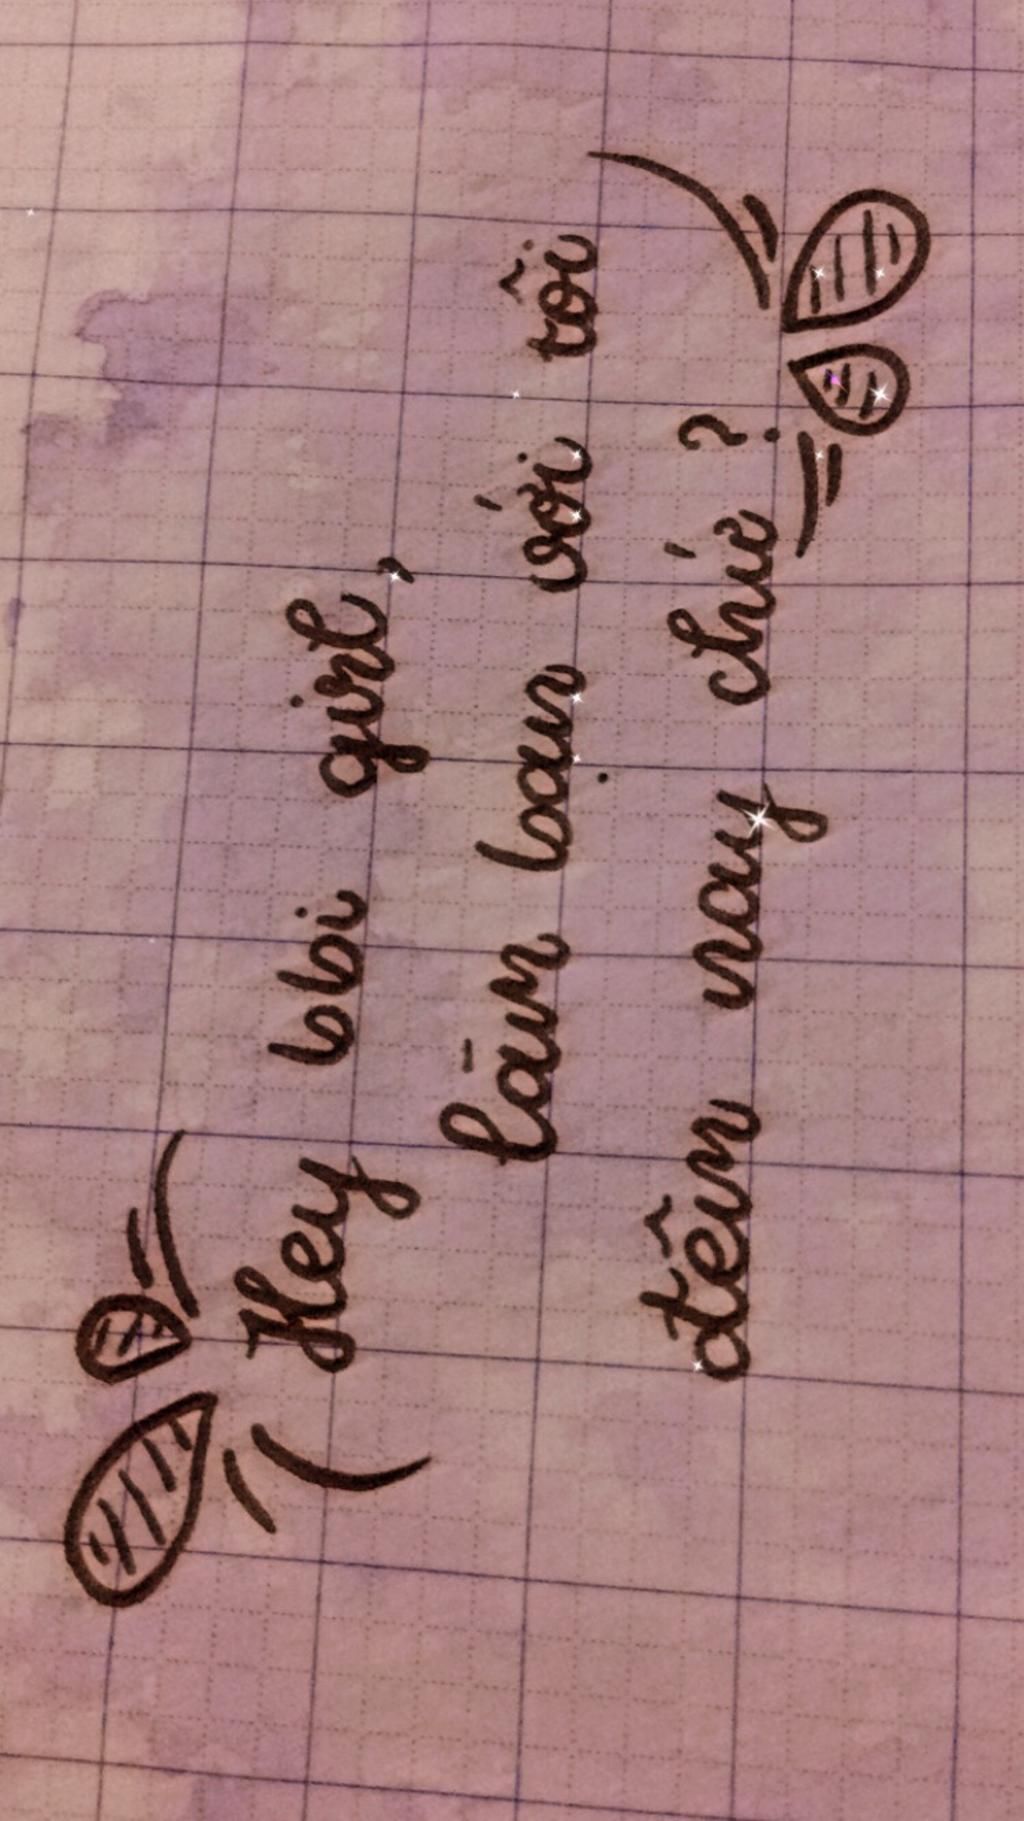 Hey bbi girl,
làm bạn với tôi
đêm nay chứ ?